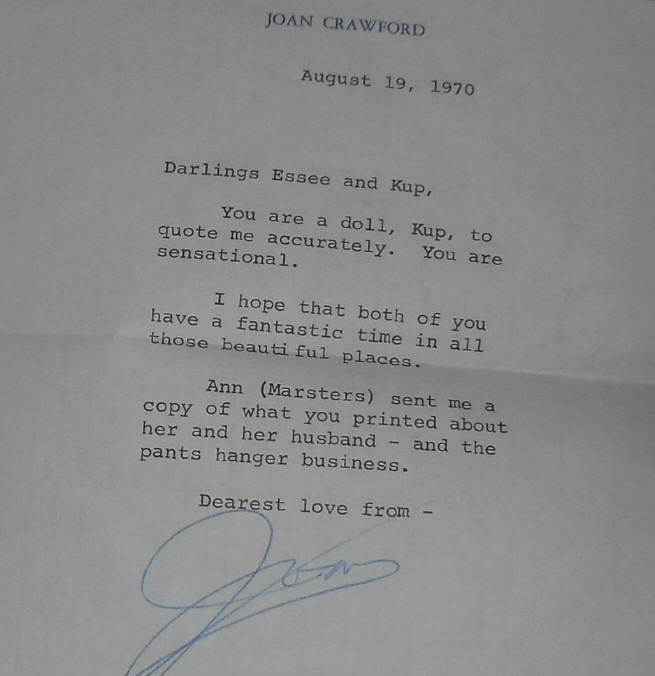 JOAN CRAWFORD
August 19, 1970
Darlings Essee and Kup,
You are a doll, Kup, to
quote me accurately. You are
sensational.
I hope that both of you
have a fantastic time in all
those beautiful places.
Ann (Marsters) sent me a
copy of what you printed about
her and her husband - and the
pants hanger business.
Dearest love from -
Joan